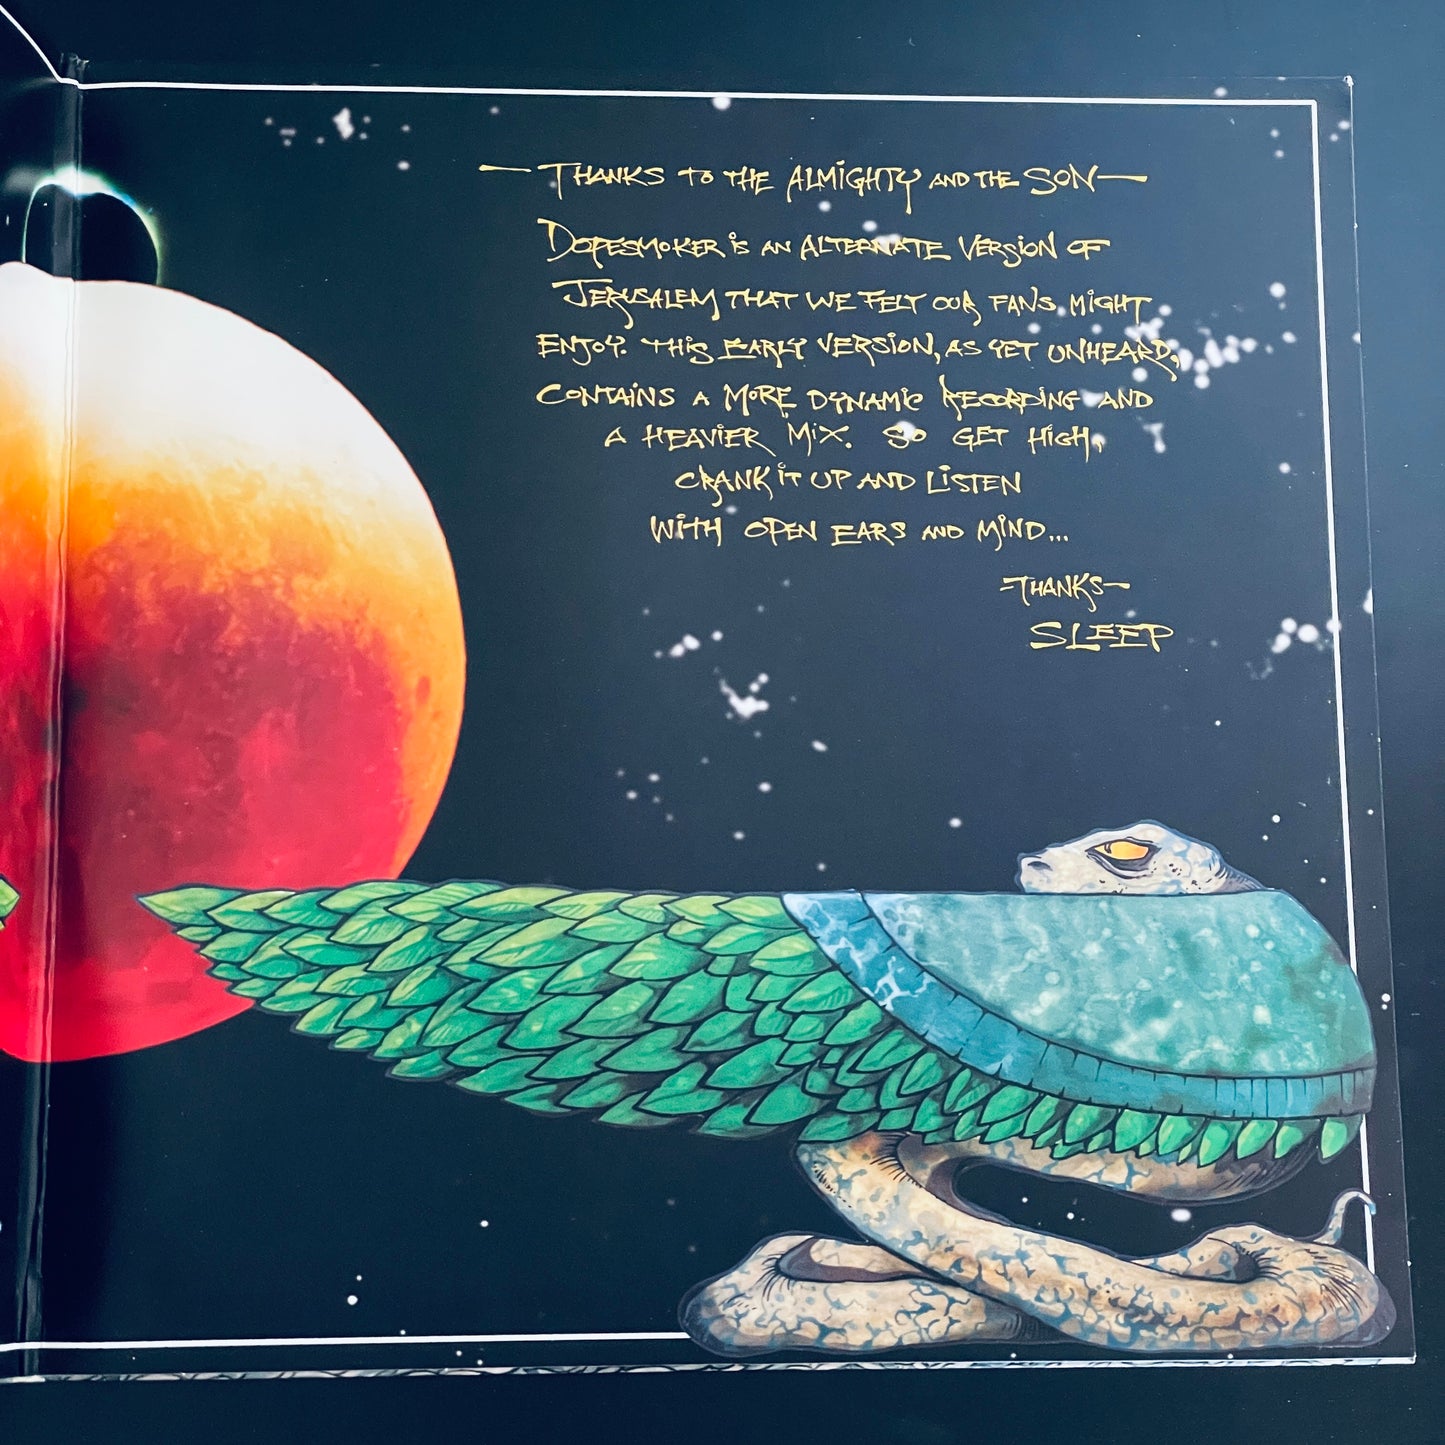 — THANKS TO THE ALMIGHTY AND THE SON —
DOPESMOKER IS AN ALTERNATE VERSION OF
JERUSALEM THAT WE FELT OUR FANS MIGHT
ENJOY. THIS EARLY VERSION, AS YET UNHEARD,
CONTAINS A MORE DYNAMIC RECORDING AND
A HEAVIER MIX. SO GET HIGH,
CRANK IT UP AND LISTEN
WITH OPEN EARS AND MIND...
-THANKS-
SLEEP